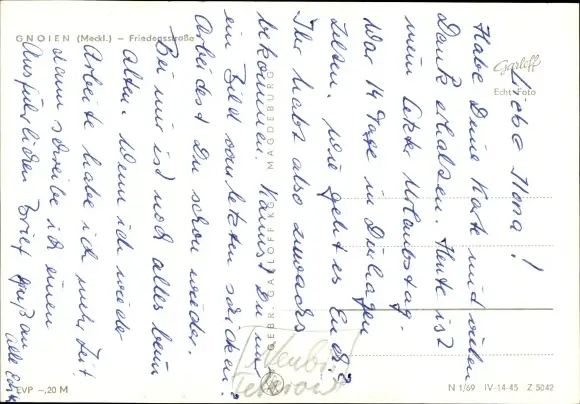 GNOIEN (Meckl.) – Friedensstraße
Garloff
Echt Foto
GEBR. GARLOFF KG, MAGDEBURG
EVP –,20 M
N 1/69 IV-14-45 Z 5042
Liebe Ilona!
Habe Deine Karte mit vielen
Dank erhalten. Heute ist
mein letzter Urlaubstag.
War 14 Tage in
Zelten. Wie geht es Euch?
Ihr habt also zuwachs
bekommen. Kannst Du mir
ein Bild vom letzten schicken?
Arbeitest Du schon wieder.
Bei mir ist noch alles beim
alten. Wenn ich wieder
Arbeite habe ich mehr Zeit
dann schreibe ich einen
Ausführlichen Brief Gruß an
alle